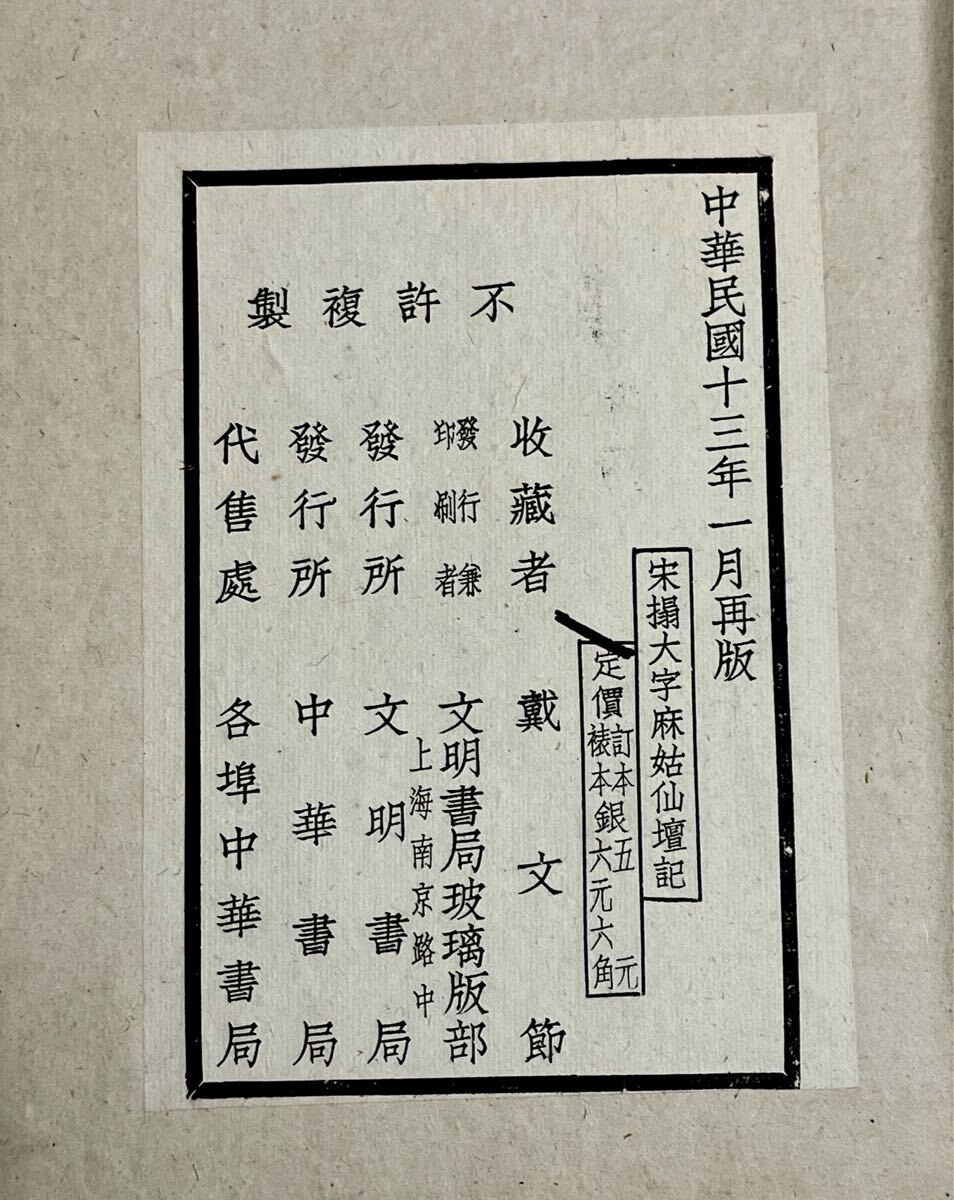 中華民國十三年一月再版
宋搨大字麻姑仙壇記
定價訂本銀五元
裱本銀六元六角
不許複製
收藏者 戴文節
發行兼印刷者 文明書局玻璃版部
上海南京路中
發行所 文明書局
發行所 中華書局
代售處 各埠中華書局